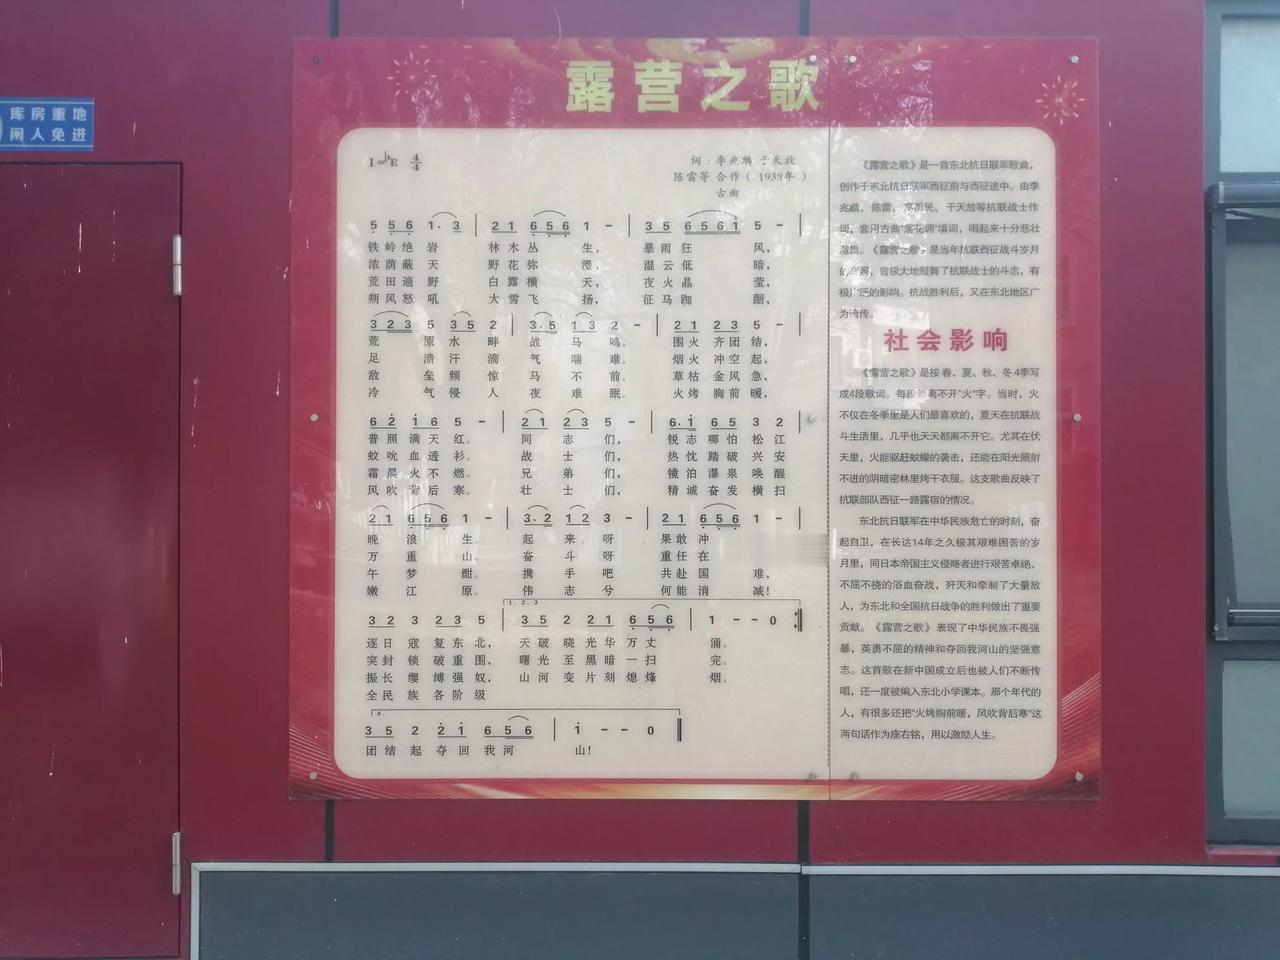 库房重地
闲人免进
露营之歌
1=♭E 4/4
词：李兆麟 于天放
陈雷等 合作（1938年）
古曲
5 5 6 1· 3 | 2 1 6 5 6 1 - | 3 5 6 5 6 1 5 - |
铁岭绝岩 林木丛生， 暴雨狂风，
浓荫蔽天 野花弥漫， 湿云低暗，
荒田遍野 白露横天， 夜火晶莹，
朔风怒吼 大雪飞扬， 征马踟蹰，
3 2 3 5 3 5 2 | 3· 5 1 3 2 - | 2 1 2 3 5 - |
荒原水畔 战马鸣。 围火齐团结，
足溃汗滴 气喘难。 烟火冲空起，
敌垒频惊 马不前。 草枯金风急，
冷气侵人 夜难眠。 火烤胸前暖，
6 2 1 6 5 - | 2 1 2 3 5 - | 6· 1 6 5 3 2 |
普照满天红。 同志们， 锐志哪怕松江
蚊吮血透衫。 战士们， 热忱踏破兴安
霜晨火不燃。 兄弟们， 镜泊瀑泉唤醒
风吹背后寒。 壮士们， 精诚奋发横扫
2 1 6 5 6 1 - | 3· 2 1 2 3 - | 2 1 6 5 6 1 - |
晚浪生。 起来呀 果敢冲
万重山。 奋斗呀 重任在
午梦酣。 携手吧 共赴国难，
嫩江原。 伟志兮 何能消减！
1. 2. 3
3 2 3 2 3 5 | 3 5 2 2 1 6 5 6 | 1 - - 0 :‖
逐日寇复东北， 天破晓光华万丈涌。
突封锁破重围， 曙光至黑暗一扫完。
振长缨缚强奴， 山河变片刻熄烽烟。
全民族各阶级
4.
3 5 2 2 1 6 5 6 | 1 - - 0 ‖
团结起夺回我河山！
《露营之歌》是一首东北抗日联军歌曲，
创作于东北抗日联军西征前与西征途中。由李
兆麟、陈雷、高禹民、于天放等抗联战士作
词，套用古曲“落花调”填词，唱起来十分悲壮
激昂。《露营之歌》是当年抗联西征战斗岁月
的号角，曾极大地鼓舞了抗联战士的斗志，有
极广泛的影响。抗战胜利后，又在东北地区广
为流传。
社会影响
《露营之歌》是按春、夏、秋、冬4季写
成4段歌词。每段都离不开“火”字。当时，火
不仅在冬季里是人们最喜欢的，夏天在抗联战
斗生活里，几乎也天天都离不开它。尤其在伏
天里，火能驱赶蚊蠓的袭击，还能在阳光照射
不进的阴暗密林里烤干衣服。这支歌曲反映了
抗联部队西征一路露宿的情况。
东北抗日联军在中华民族危亡的时刻，奋
起自卫，在长达14年之久极其艰难困苦的岁
月里，同日本帝国主义侵略者进行艰苦卓绝、
不屈不挠的浴血奋战，歼灭和牵制了大量敌
人，为东北和全国抗日战争的胜利做出了重要
贡献。《露营之歌》表现了中华民族不畏强
暴，英勇不屈的精神和夺回我河山的坚强意
志。这首歌在新中国成立后也被人们不断传
唱，还一度被编入东北小学课本。那个年代的
人，有很多还把“火烤胸前暖，风吹背后寒”这
两句话作为座右铭，用以激励人生。